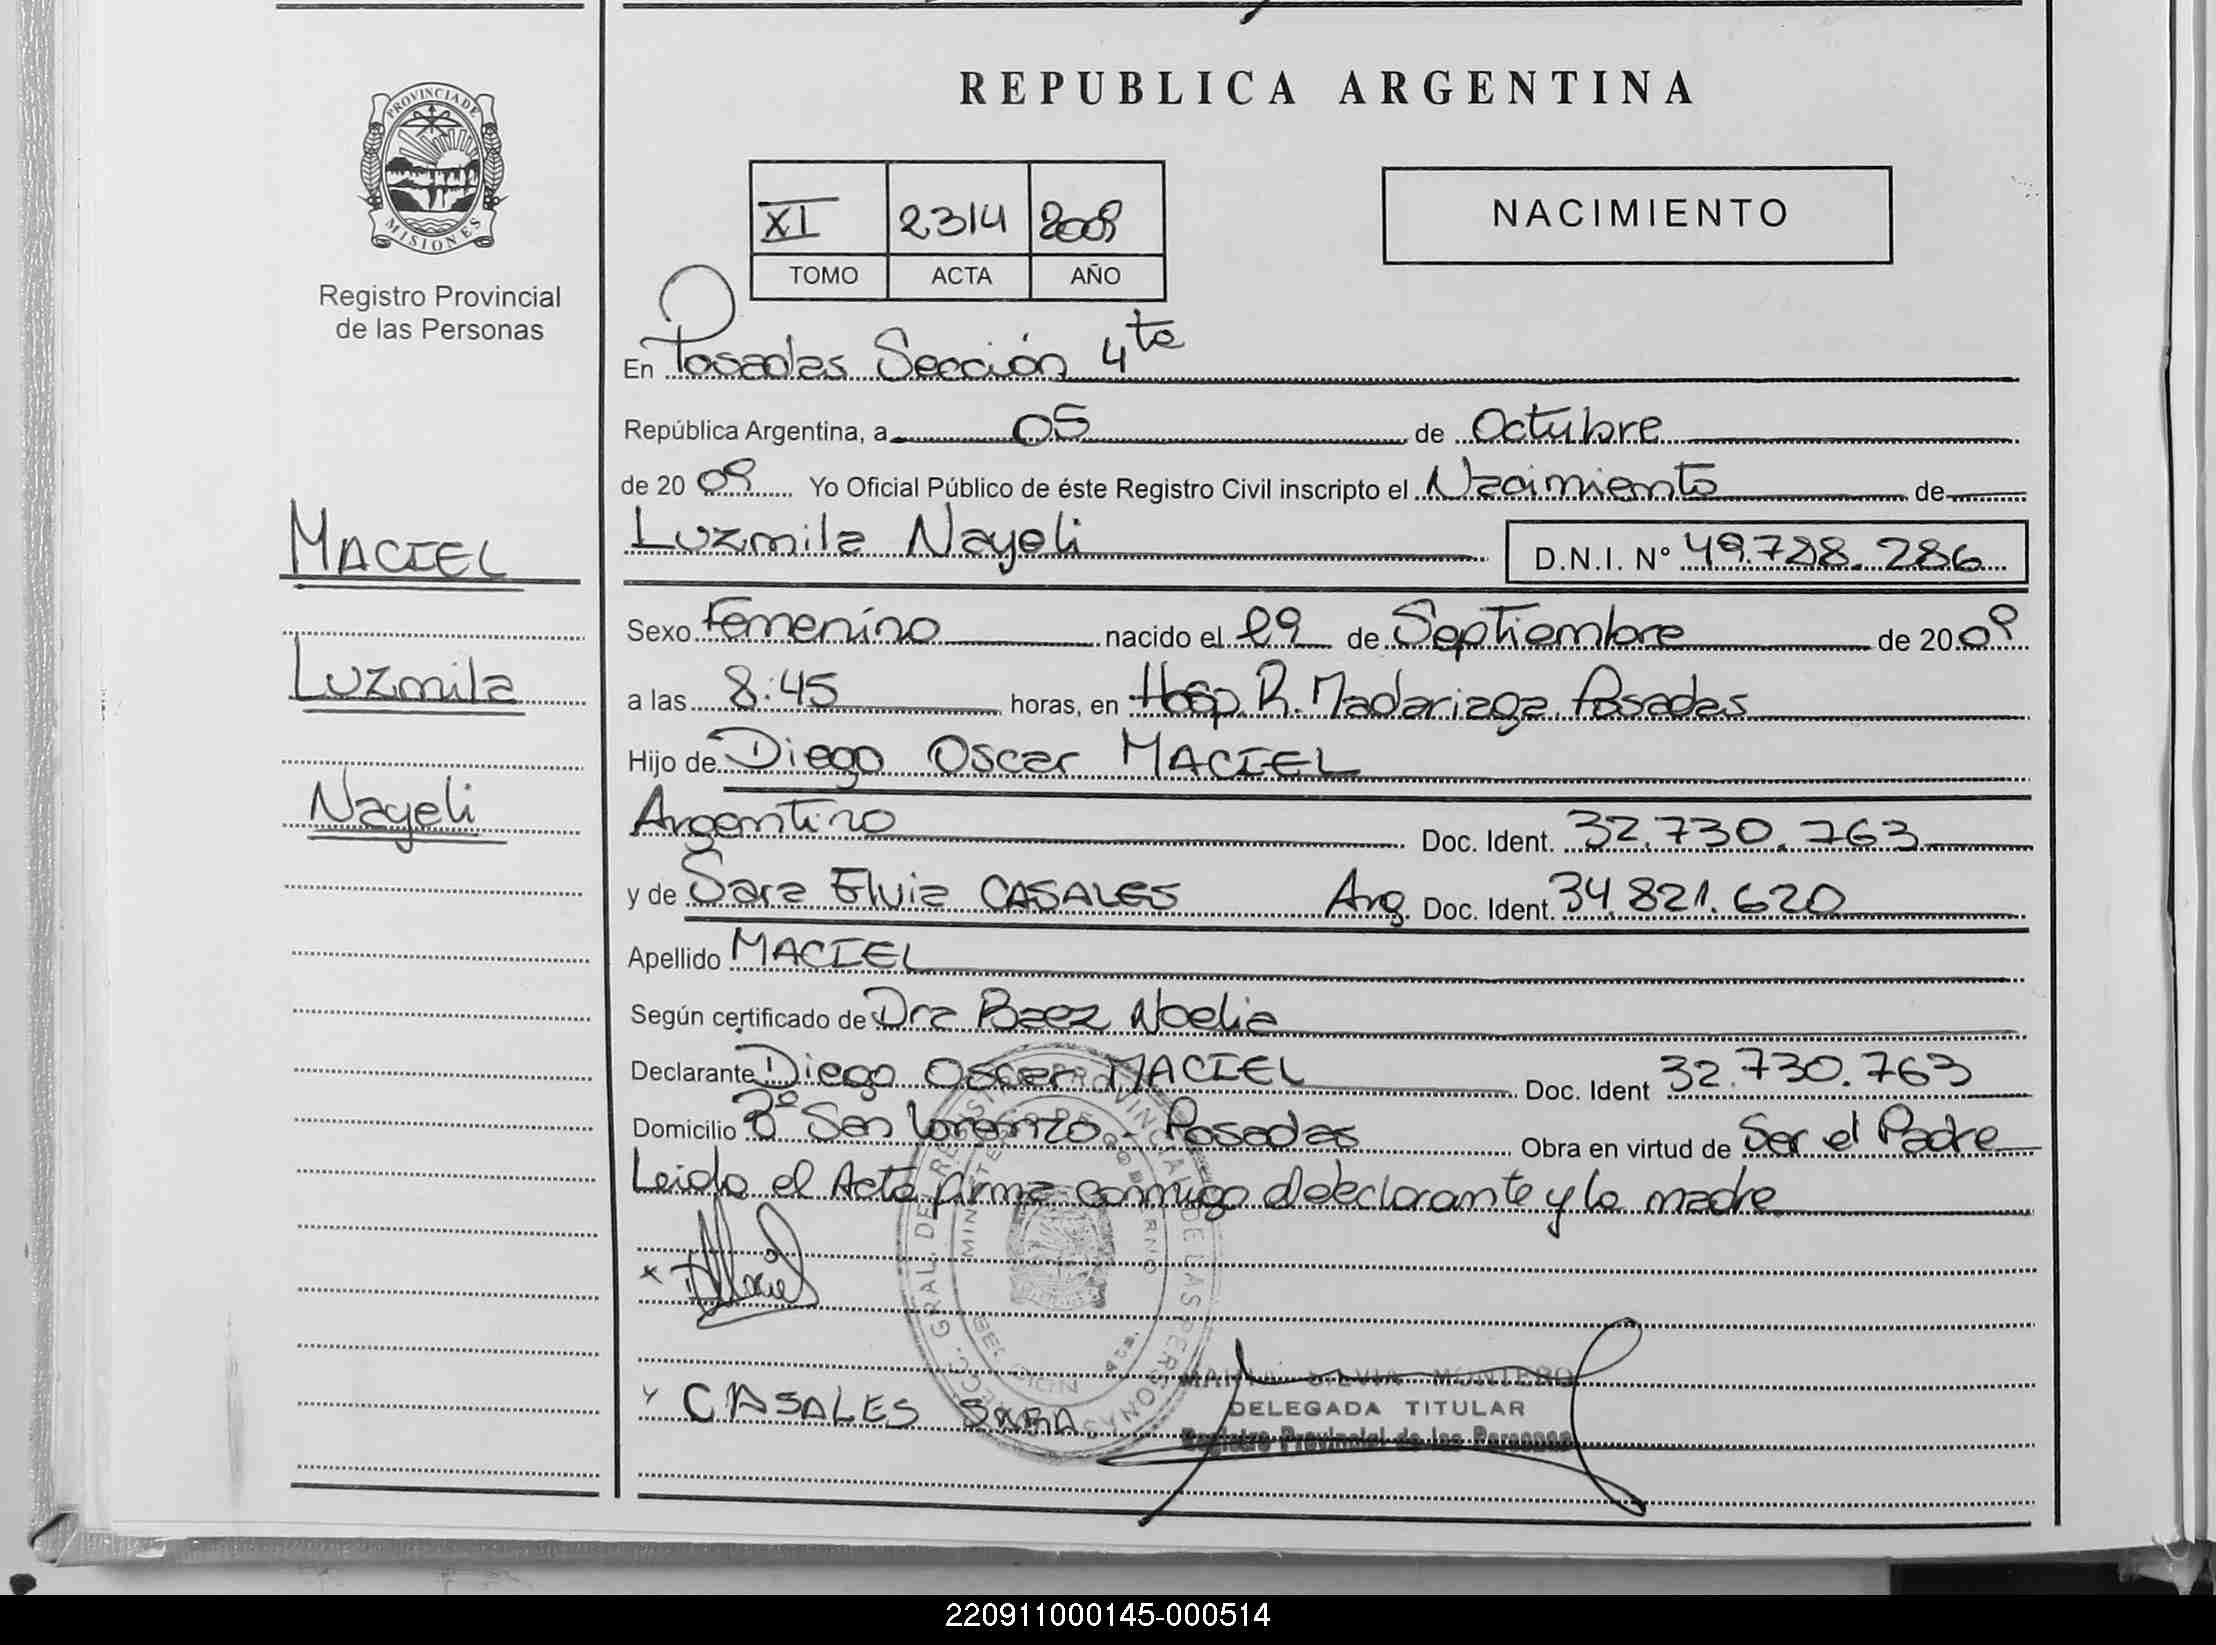 REPUBLICA ARGENTINA
PROVINCIA DE
MISIONES
Registro Provincial
de las Personas
XI 2314 2009
TOMO ACTA AÑO
NACIMIENTO
En Posadas Sección 4ta
República Argentina, a 05 de Octubre
de 2009 Yo Oficial Público de éste Registro Civil inscripto el Nacimiento de
Luzmila Nayeli D.N.I. Nº 49.788.286
MACIEL
Luzmila
Nayeli
Sexo Femenino nacido el 29 de Septiembre de 2009
a las 8:45 horas, en Hosp. R. Madariaga. Posadas
Hijo de Diego Oscar MACIEL
Argentino Doc. Ident. 32.730.763
y de Sara Elvia CASALES Arg. Doc. Ident. 34.821.620
Apellido MACIEL
Según certificado de Dra Baez Noelia
Declarante Diego Oscar MACIEL Doc. Ident 32.730.763
Domicilio Bº San Lorenzo - Posadas Obra en virtud de Ser el Padre
Leido el Acta firma conmigo el declarante y la madre
x
CASALES SARA
SILVIA MONTERO
DELEGADA TITULAR
Registro Provincial de las Personas
220911000145-000514